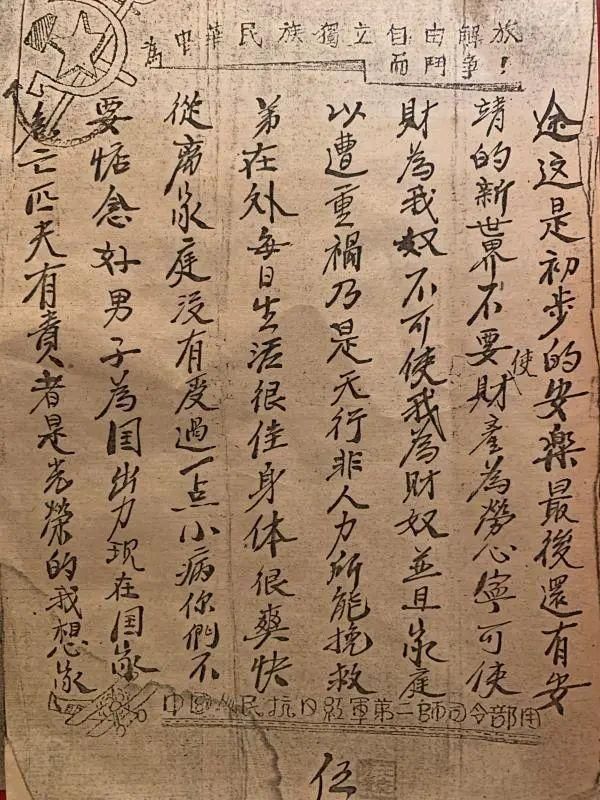 為中華民族獨立自由解放
而鬥爭!
途这是初步的安樂最後還有安
靖的新世界不要使財產為勞心寧可使
財為我奴不可使我為財奴並且家庭
以遭重禍乃是天行非人力所能挽救
弟在外每日生活很佳身体很爽快
從离家庭没有受過一点小病你們不
要惦念好男子為国出力现在国家
亡匹夫有責者是光榮的我想家
中国人民抗日红軍第二師司令部用
伍